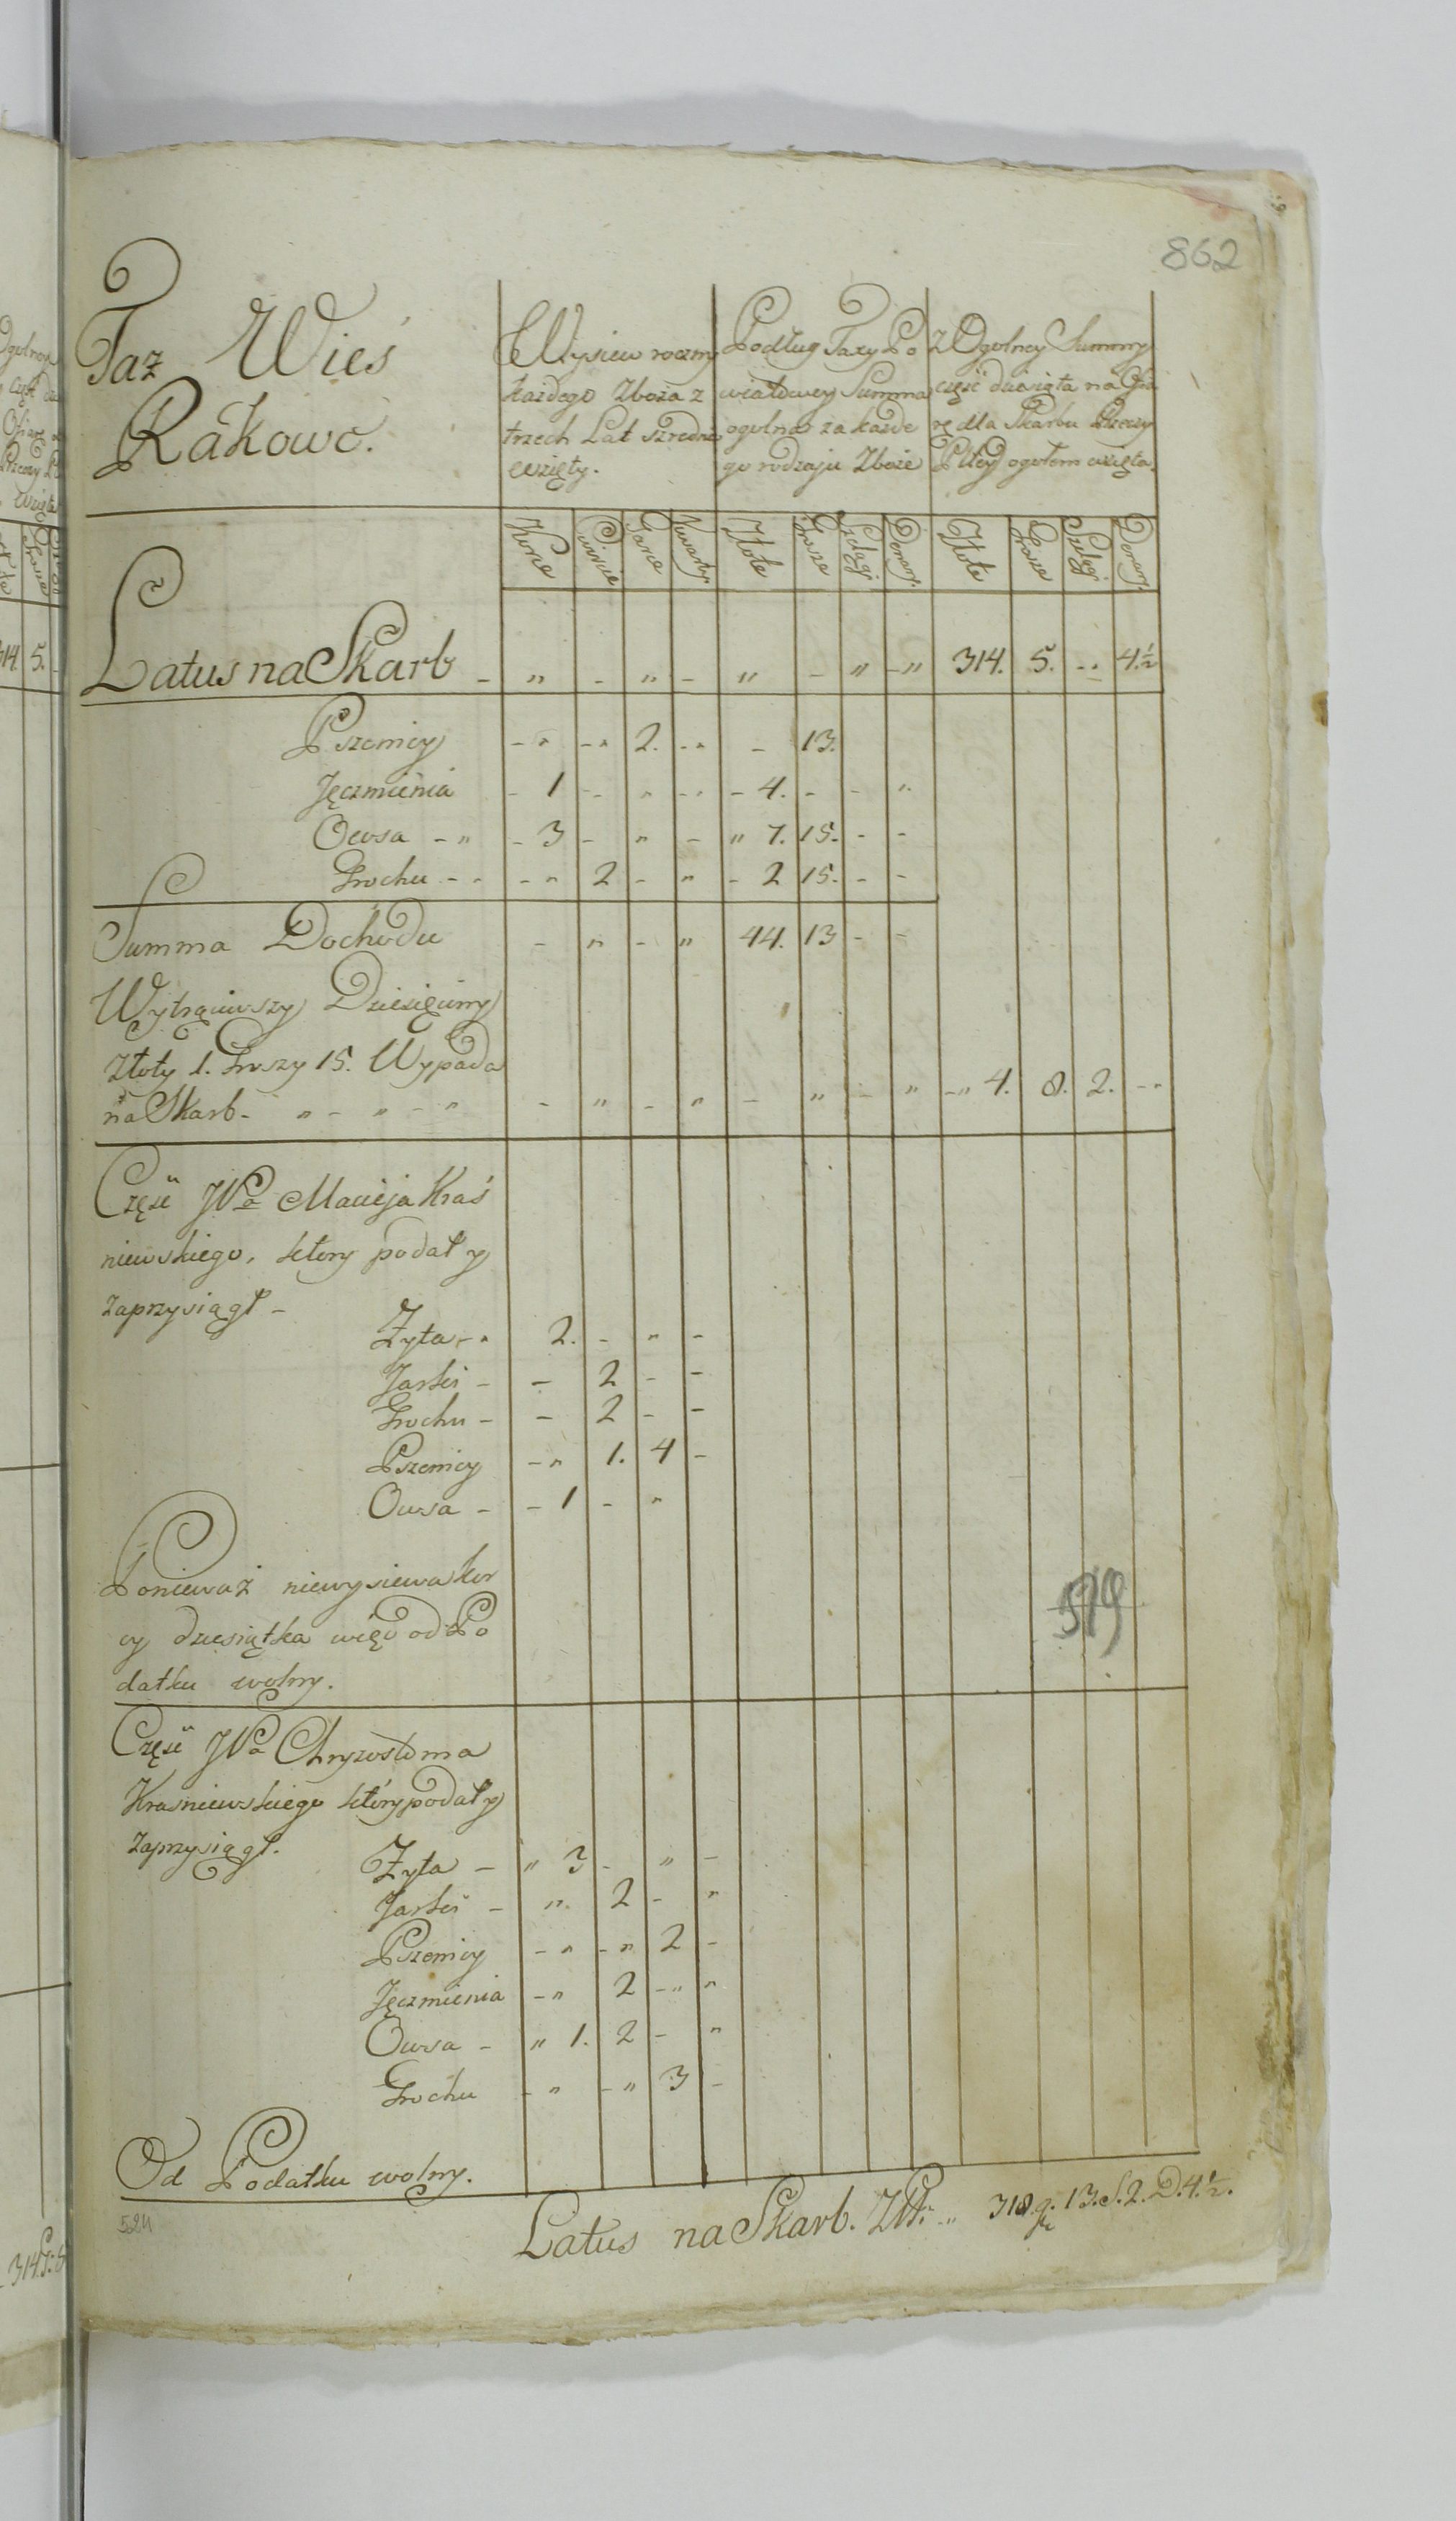 862
Taż Wieś
Rakowo.
Wysiew roczny
każdego Zboża z
trzech Lat szrednio
wzięty.
Podług Taxy Po
wiatowey Summa
ogulna za każde
go rodzaju Zboże
Z Ogolney Summy
część dziesiąta na Ofia
rę dla Skarbu Rzeczy
Pltey ogołem wzięta.
Korce Ćwierci Garce Kwarty Złote Grosze Szelągi Denary Złote Grosze Szelągi Denary
Latus na Skarb - „ - „ - „ - „ - „ 314. 5. - - 4.½
Pszenicy - „ - „ 2. - „ - 13.
Jęczmienia - 1 - - „ - - - 4. - - „
Owsa - „ - 3 - „ - „ 7. 15. - -
Grochu - - - „ 2 - „ - 2 15. - -
Summa Dochodu - „ - „ 44. 13 - -
Wytrąciwszy Dziesięciny
Złoty 1. Groszy 15. Wypada
na Skarb - „ - „ - „ - „ - „ - „ - „ - „ 4. 8. 2. - -
Częsć JPa Macieja Kraś
niewskiego, ktory podał y
zaprzysiągł -
Żyta - „ 2. - „ -
Jarki - - 2 - -
Grochu - - 2 - -
Pszenicy - „ 1. 4 -
Owsa - - 1 - „
Ponieważ niewysiewa kor
cy dziesiątka więc od Po
datku wolny.
519
Częsć JPa Chryzostoma
Krasniewskiego który podał y
zaprzysiągł.
Żyta - „ 3 - „ -
Jarki - „ 2 - „
Pszenicy - „ - „ 2 -
Jęczmienia - „ 2 - „ „
Owsa - „ 1. 2 - „
Grochu - „ - „ 3 -
Od Podatku wolny.
Latus na Skarb. Złt: „ 318. gr. 13. S. 2. D. 4.½.